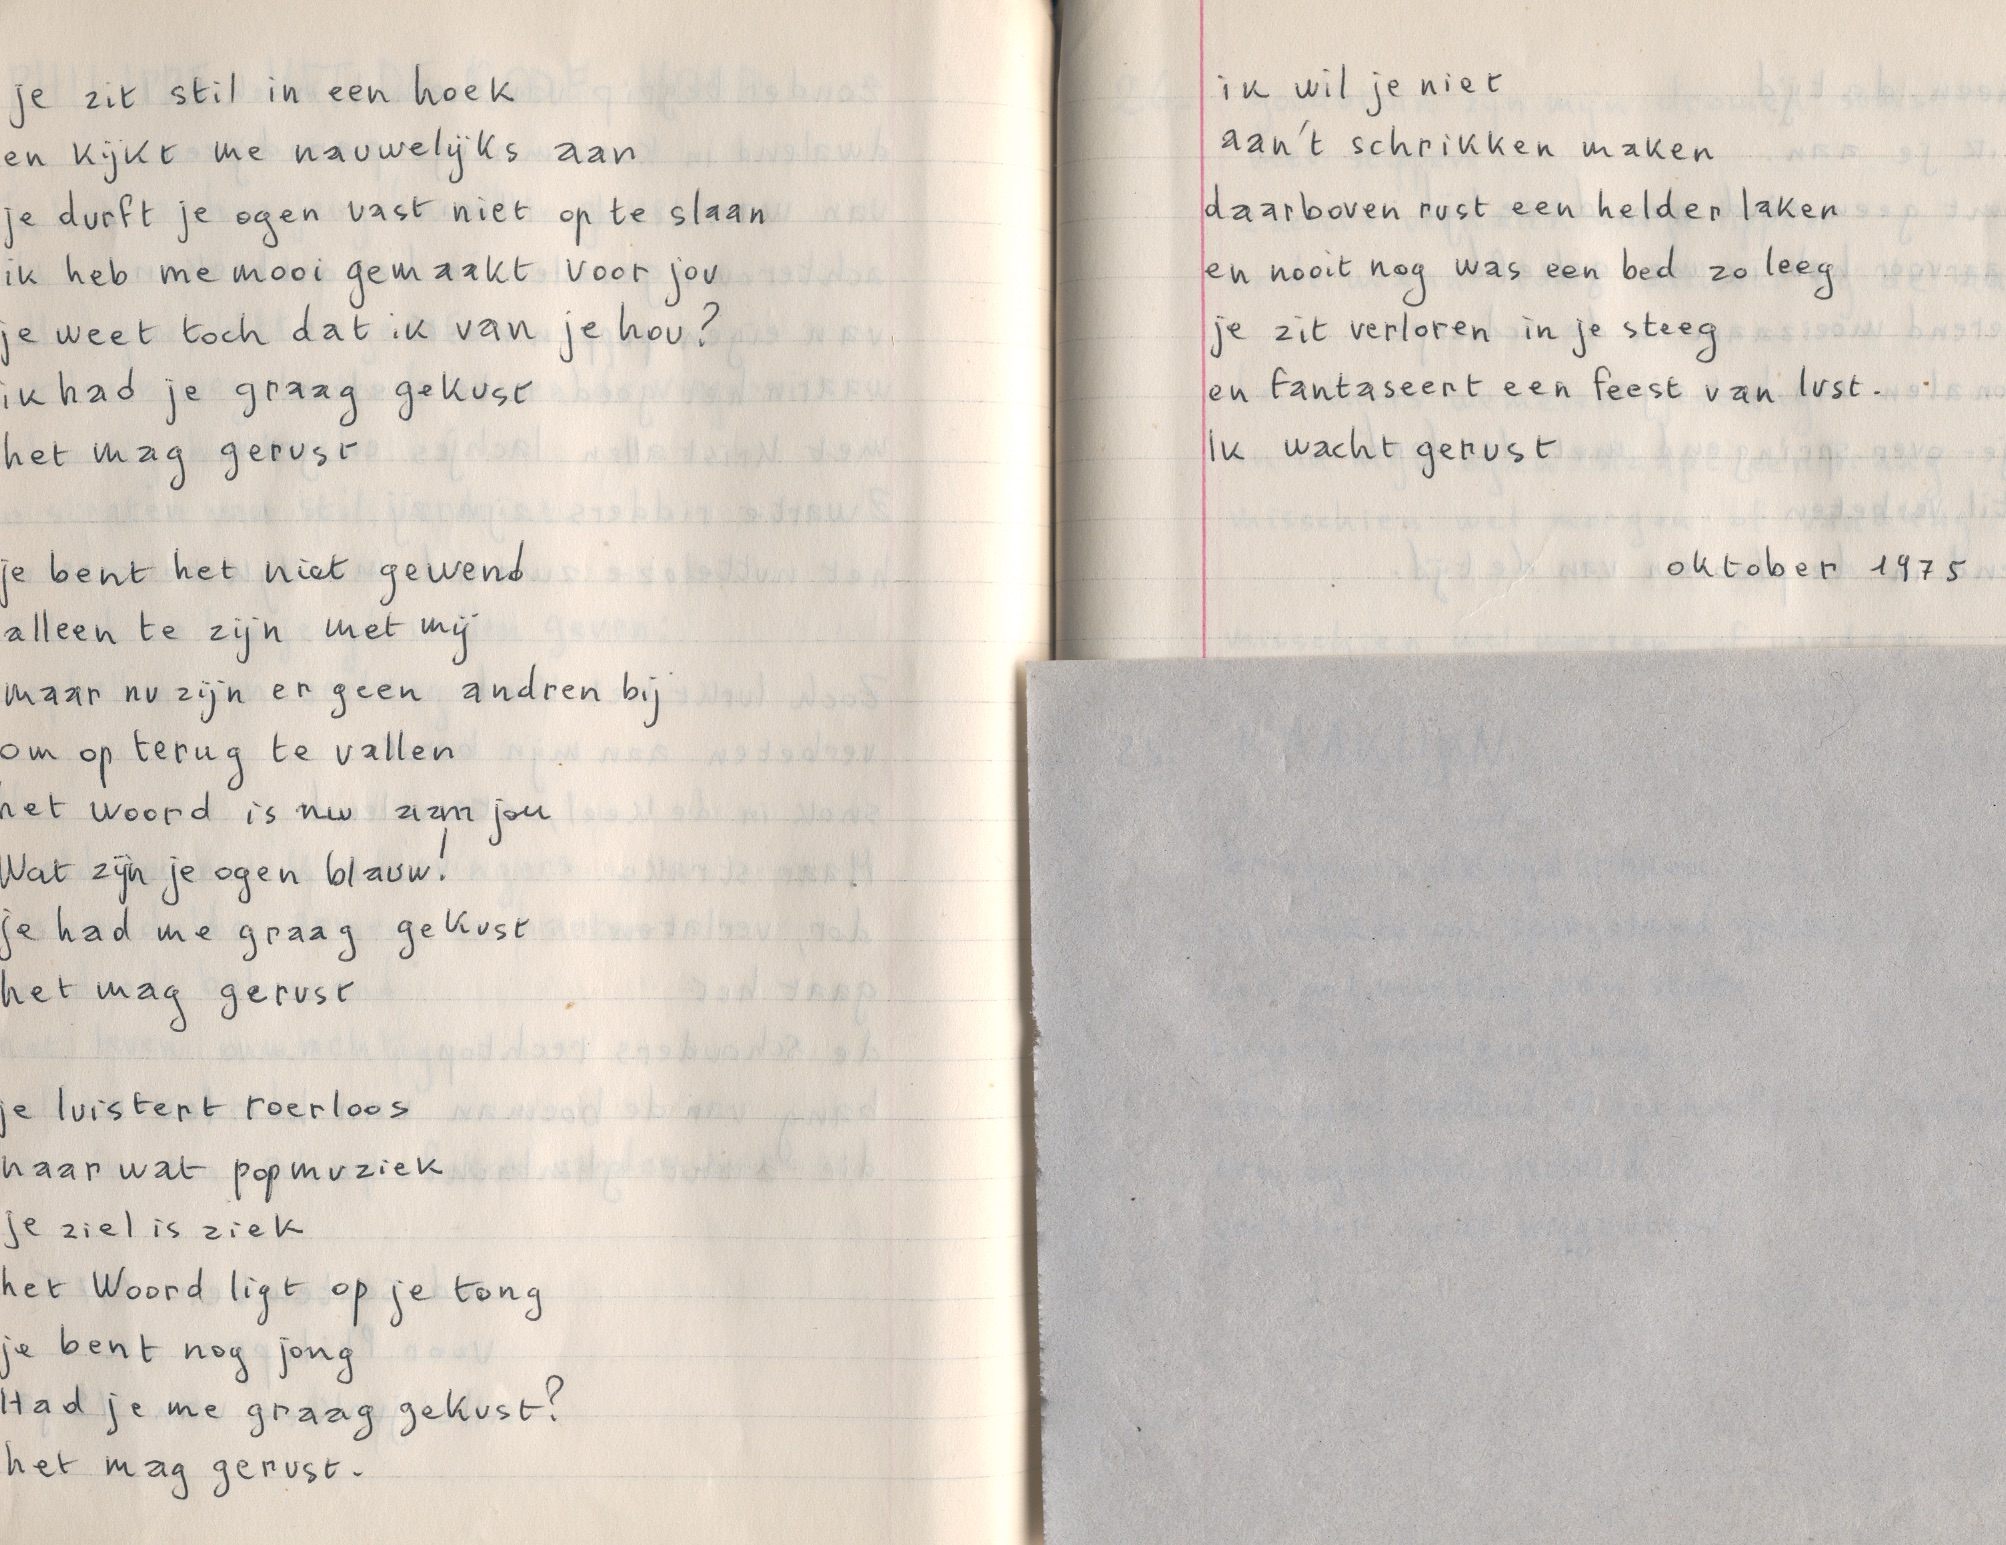 je zit stil in een hoek
en kijkt me nauwelijks aan
je durft je ogen vast niet op te slaan
ik heb me mooi gemaakt voor jou
je weet toch dat ik van je hou?
ik had je graag gekust
het mag gerust
je bent het niet gewend
alleen te zijn met mij
maar nu zijn er geen andren bij
om op terug te vallen
het woord is nu aan jou
Wat zijn je ogen blauw!
je had me graag gekust
het mag gerust
je luistert roerloos
naar wat popmuziek
je ziel is ziek
het Woord ligt op je tong
je bent nog jong
Had je me graag gekust?
het mag gerust.
ik wil je niet
aan't schrikken maken
daarboven rust een helder laken
en nooit nog was een bed zo leeg
je zit verloren in je steeg
en fantaseert een feest van lust.
Ik wacht gerust
oktober 1975